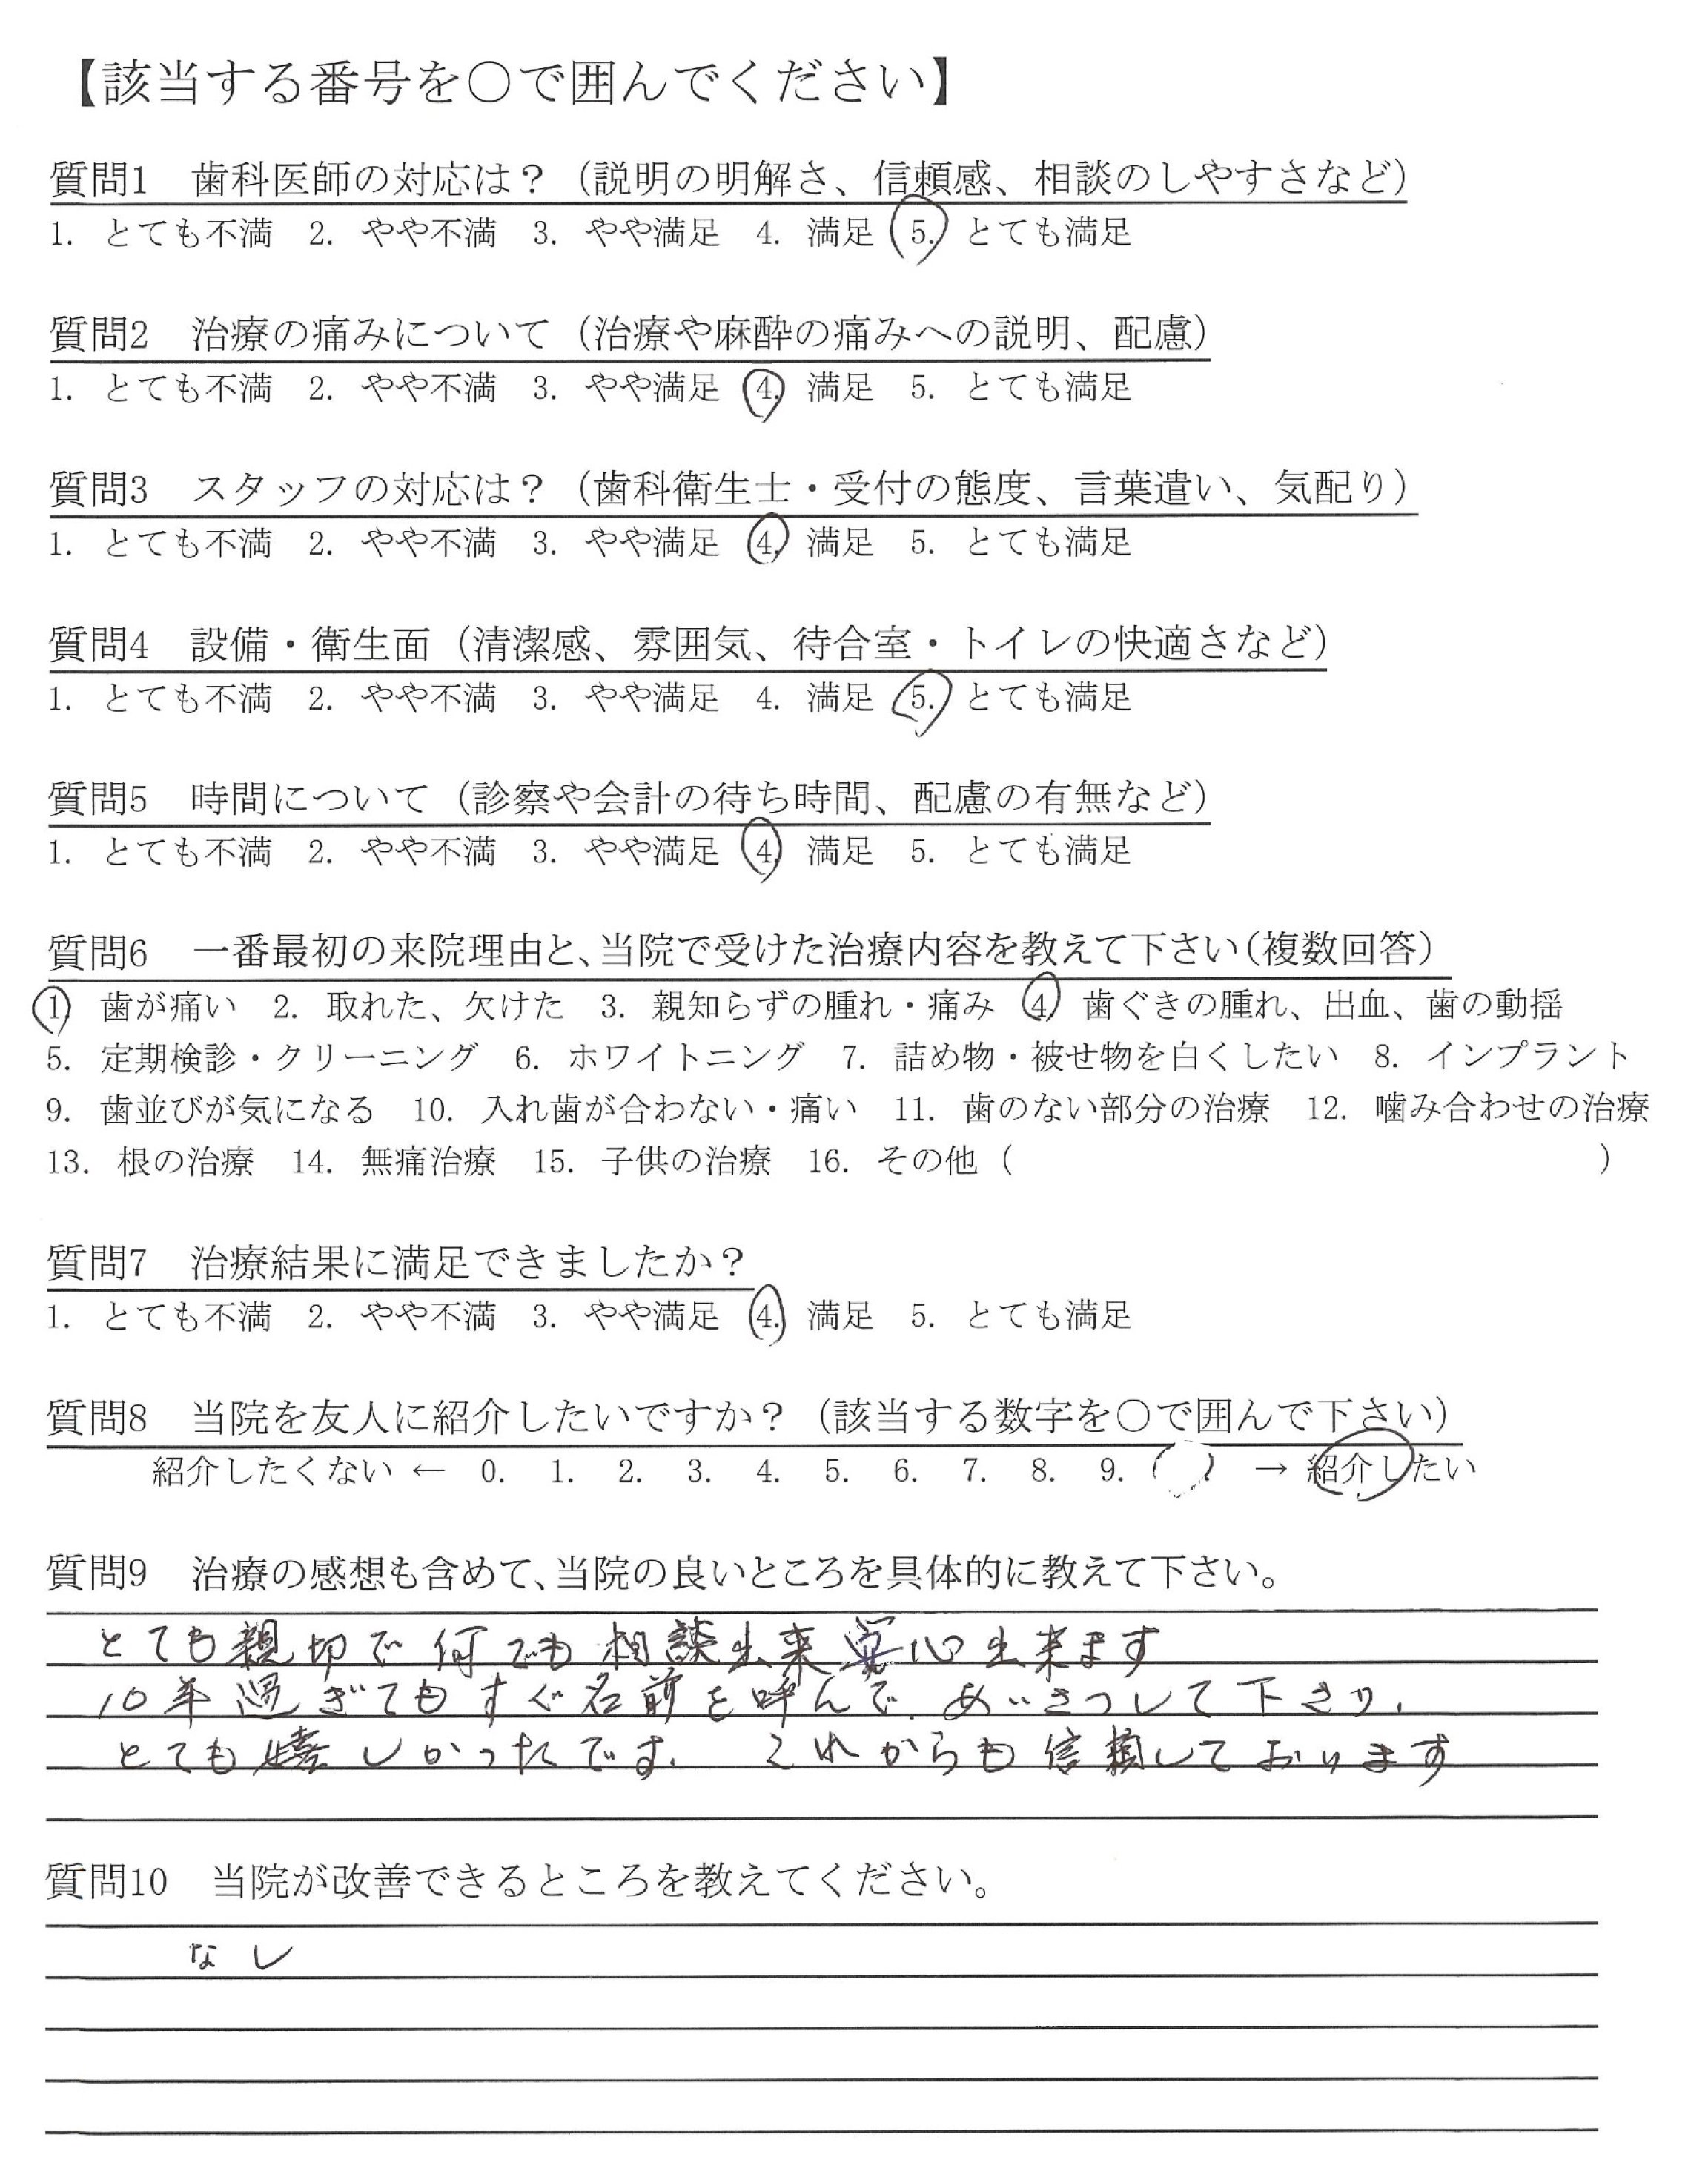 【該当する番号を○で囲んでください】
質問1　歯科医師の対応は？（説明の明解さ、信頼感、相談のしやすさなど）
1. とても不満　2. やや不満　3. やや満足　4. 満足　5. とても満足
質問2　治療の痛みについて（治療や麻酔の痛みへの説明、配慮）
1. とても不満　2. やや不満　3. やや満足　4. 満足　5. とても満足
質問3　スタッフの対応は？（歯科衛生士・受付の態度、言葉遣い、気配り）
1. とても不満　2. やや不満　3. やや満足　4. 満足　5. とても満足
質問4　設備・衛生面（清潔感、雰囲気、待合室・トイレの快適さなど）
1. とても不満　2. やや不満　3. やや満足　4. 満足　5. とても満足
質問5　時間について（診察や会計の待ち時間、配慮の有無など）
1. とても不満　2. やや不満　3. やや満足　4. 満足　5. とても満足
質問6　一番最初の来院理由と、当院で受けた治療内容を教えて下さい（複数回答）
1. 歯が痛い　2. 取れた、欠けた　3. 親知らずの腫れ・痛み　4. 歯ぐきの腫れ、出血、歯の動揺
5. 定期検診・クリーニング　6. ホワイトニング　7. 詰め物・被せ物を白くしたい　8. インプラント
9. 歯並びが気になる　10. 入れ歯が合わない・痛い　11. 歯のない部分の治療　12. 噛み合わせの治療
13. 根の治療　14. 無痛治療　15. 子供の治療　16. その他（　　　　）
質問7　治療結果に満足できましたか？
1. とても不満　2. やや不満　3. やや満足　4. 満足　5. とても満足
質問8　当院を友人に紹介したいですか？（該当する数字を○で囲んで下さい）
紹介したくない ← 0. 1. 2. 3. 4. 5. 6. 7. 8. 9. → 紹介したい
質問9　治療の感想も含めて、当院の良いところを具体的に教えて下さい。
とても親切で何でも相談出来安心出来ます
10年過ぎてもすぐ名前を呼んで、あいさつして下さり、
とても嬉しかったです。これからも信頼しております
質問10　当院が改善できるところを教えてください。
なし